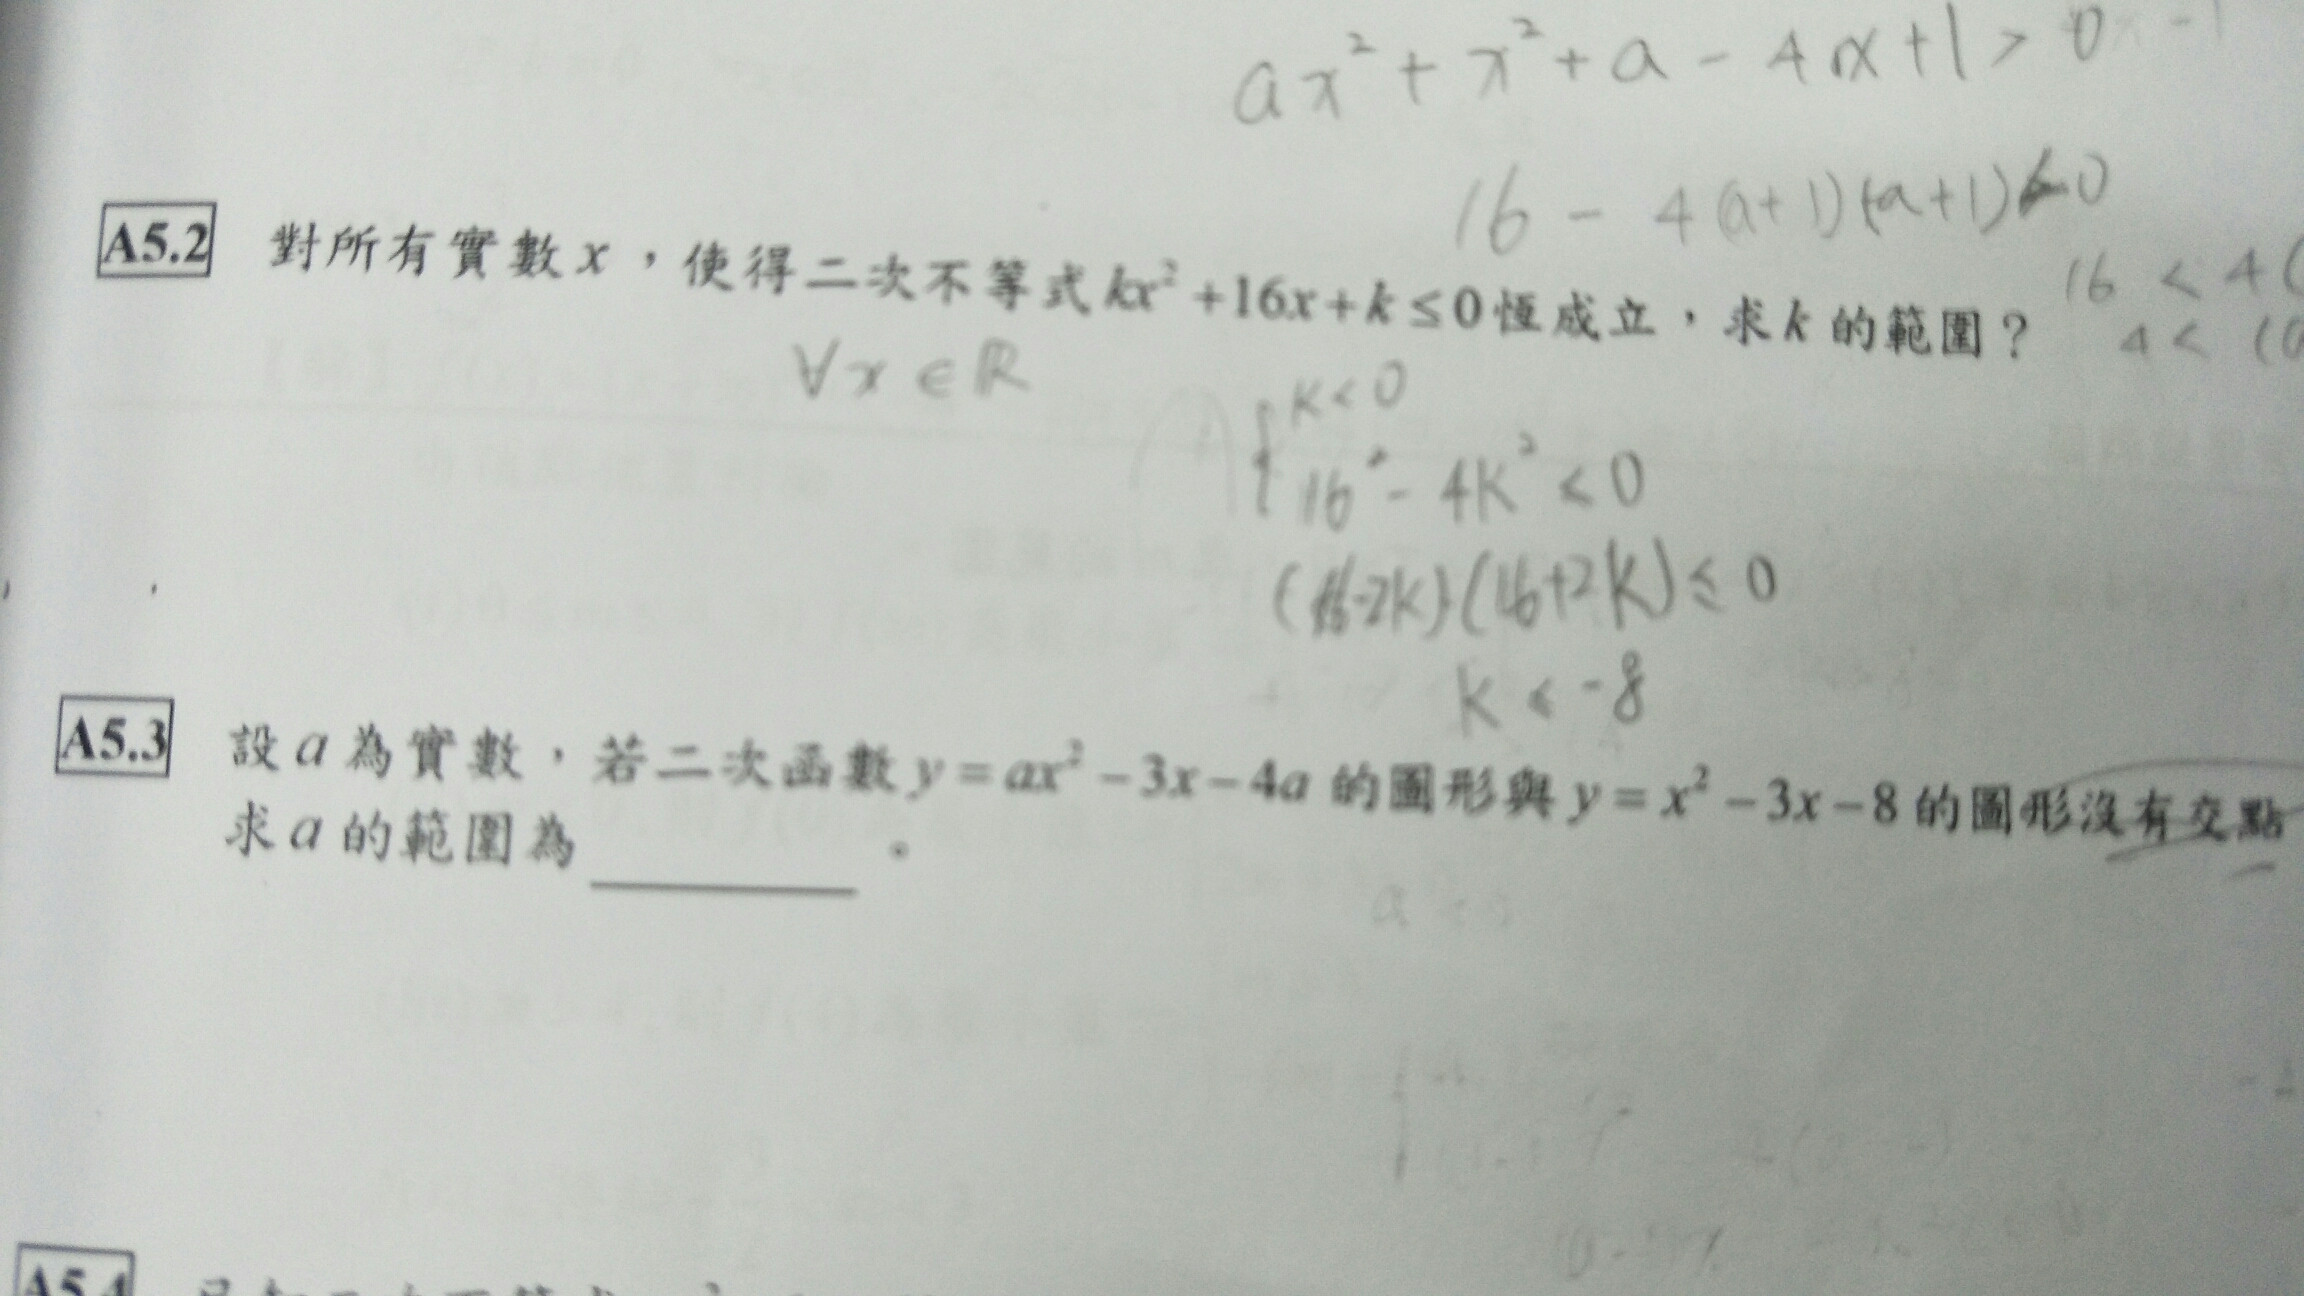 ax² + x² + a - 4x + 1 > 0
16 - 4(a+1)(a+1) < 0
16 < 4(
4 <
A5.2 對所有實數x,使得二次不等式kx²+16x+k≤0恆成立,求k的範圍?
∀x ∈ ℝ
k < 0
16² - 4k² ≤ 0
(16-2k)(16+2k) ≤ 0
k ≤ -8
A5.3 設a為實數,若二次函數y=ax²-3x-4a的圖形與y=x²-3x-8的圖形沒有交點
求a的範圍為______。
A5.4